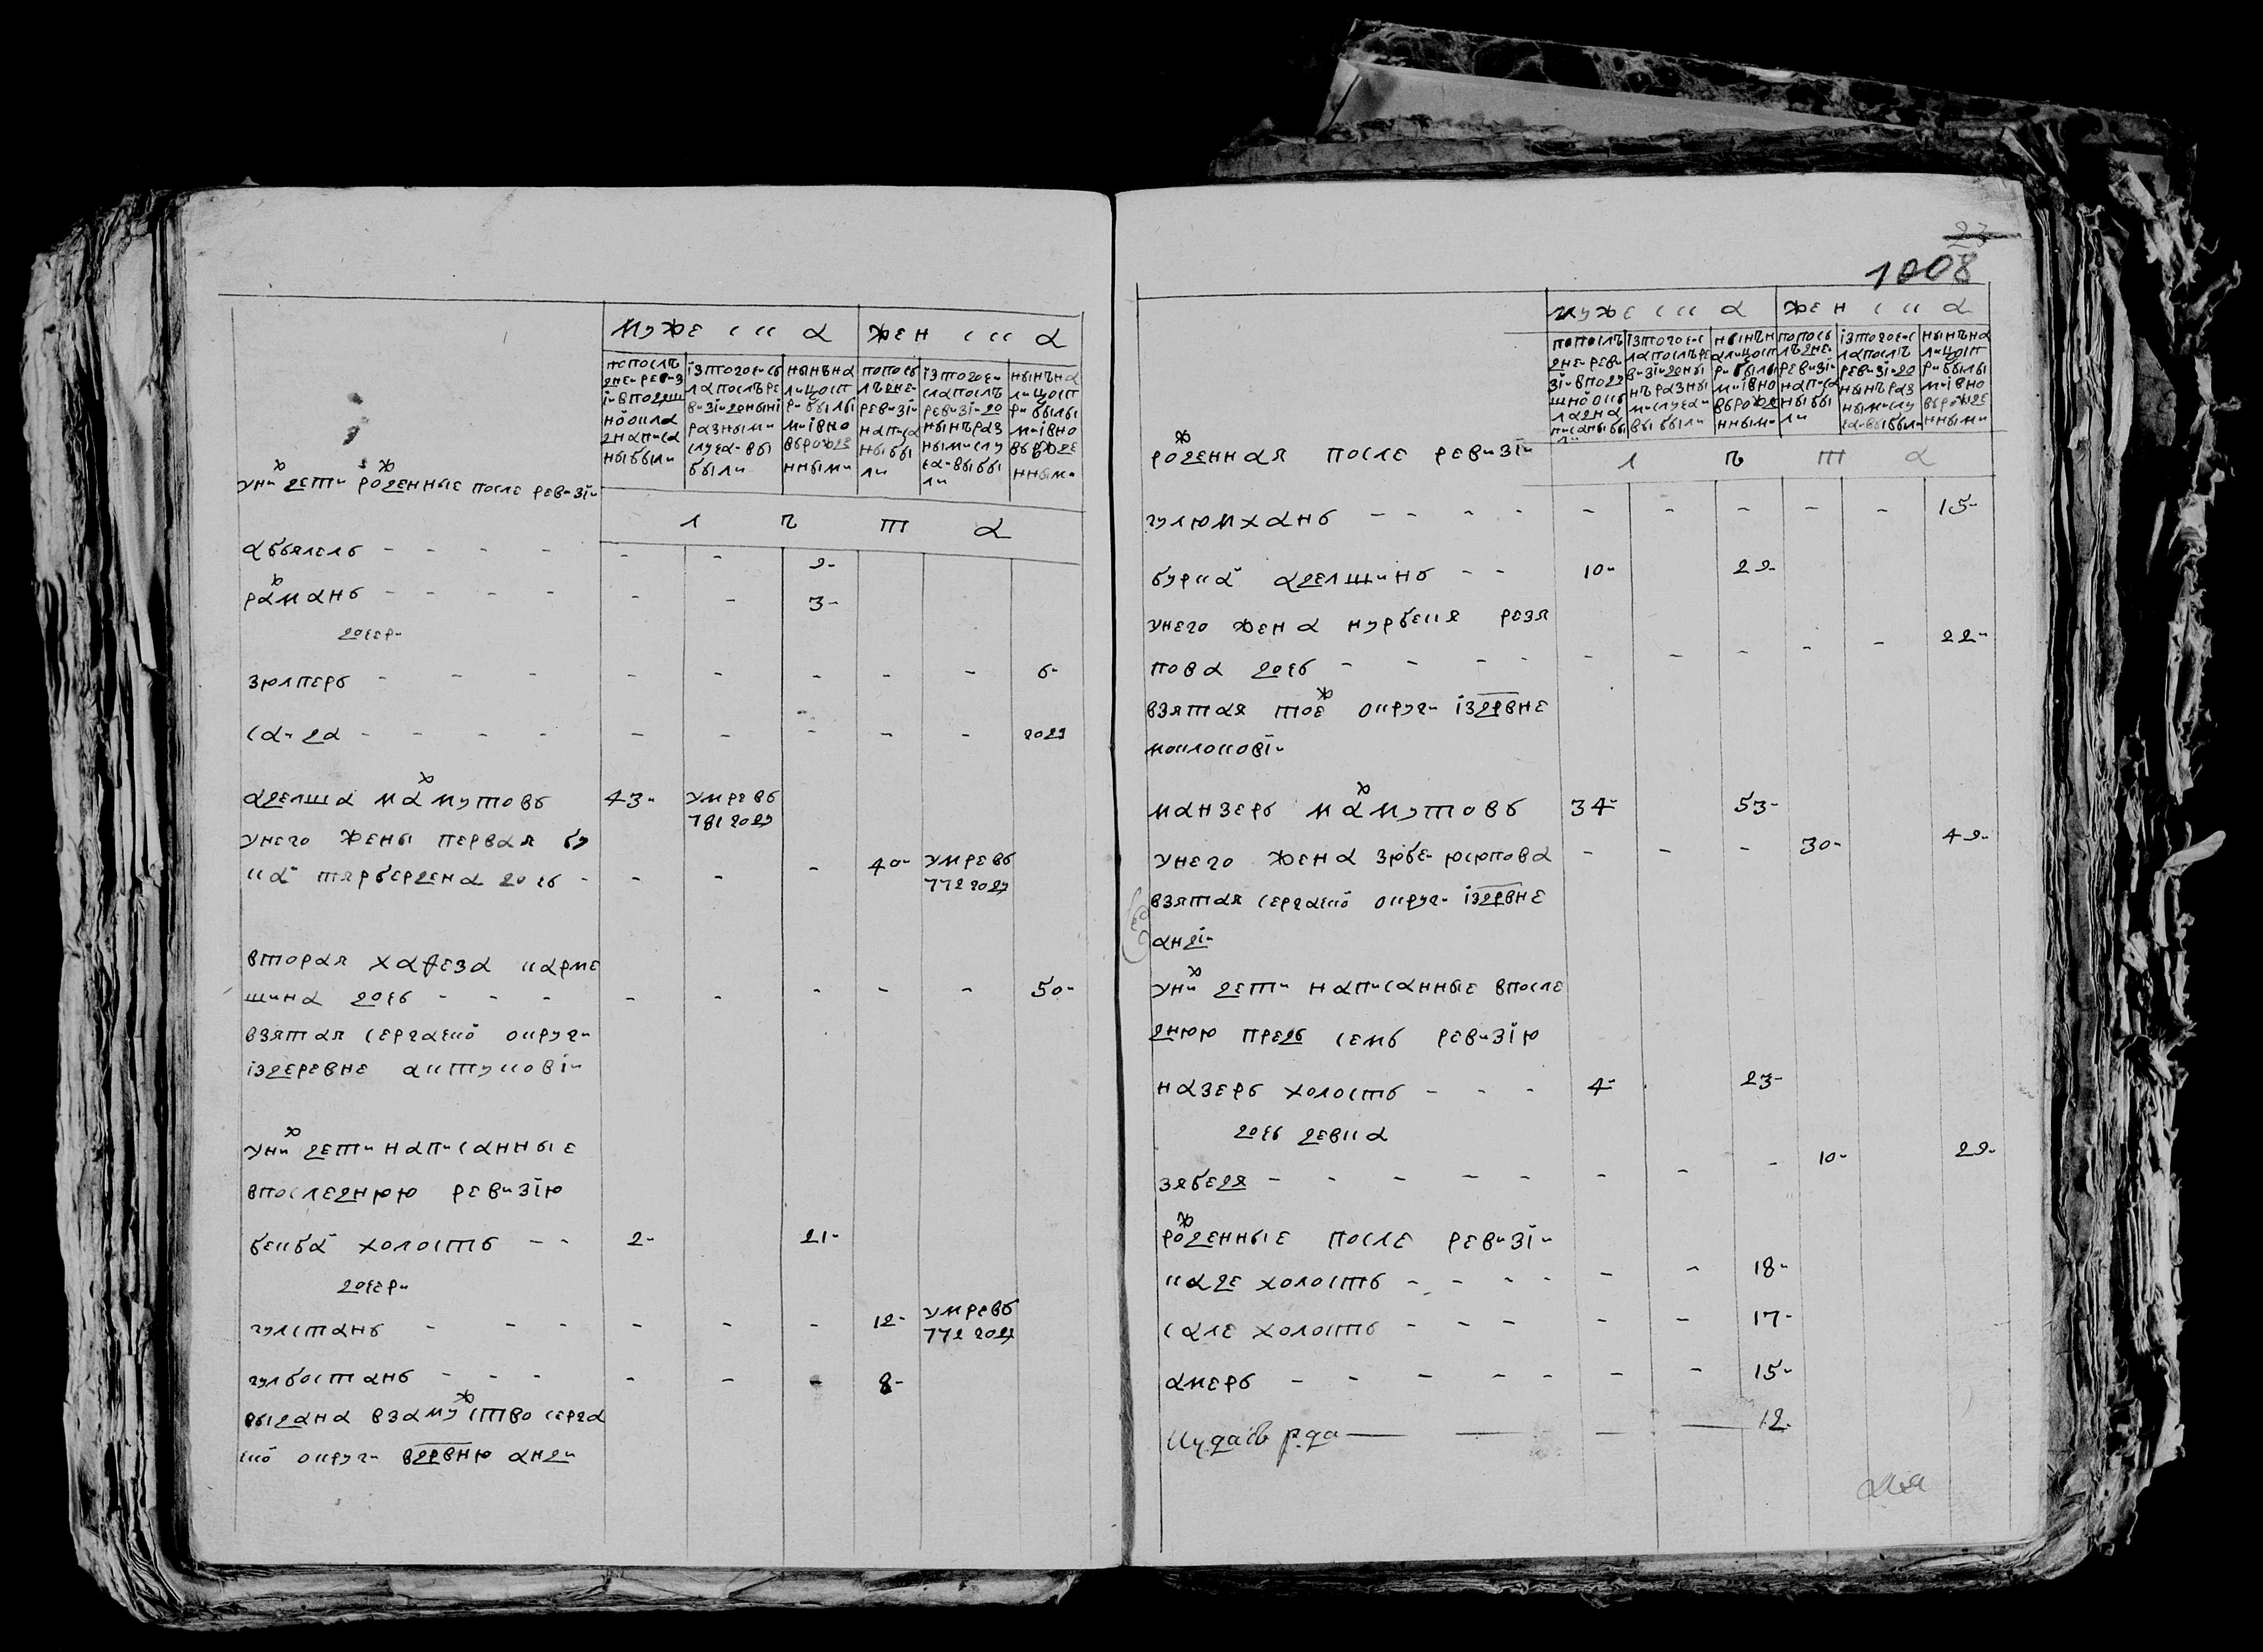 муже ска жен ска
попослѣ
дней ревиз
іи вподуш
ной скла
дна писа
ны были
ізтогочисъ
ла послѣ ре
визіи доныні
разными
случаи вы
были
нынѣ на
лицо ст
рибылы
ми івно
ворожде
нными
попось
лѣдне
ревизіи
написа
ны бы
ли
ізтогочи
сла послѣ
ревизіи до
нынѣ раз
ными слу
чаи выбы
ли
нынѣ на
лицо ст
рибылы
ми івно
ворожде
нными
уних дети рожденные после ревизіи
л ѣ т а
абялелъ - - - - - - 9-
рахманъ - - - - - - 3-
дочери
зюлперъ - - - - - - - - 6-
саида - - - - - - - - - году
аделша махмутовъ 43- умре въ
781 году
унего жены первая бу
кай тярбердена дочь - - - - 40- умре въ
772 году
вторая хафеза карме
шина дочь - - - - - - - - 50-
взятая сергацкой округи
іздеревне актуковіи
уних дети написанные
впоследнюю ревизію
бекбай холостъ - - 2- 21-
дочери
гулстанъ - - - - - - - 12- умре въ
772 году
гулбостанъ - - - - - - - 8-
выдана взамужство серга
цкой округи вдрвню анди
23
1008
муже ска жен ска
попослѣ
дней реви
зіи вподу
шной скъ
ла дна
писаны бы
ли
ізтогочис
ла послѣ ре
визіи доны
нѣ разны
ми случаи
вы были
нынѣ н
алицо ст
рибылы
ми івно
ворожде
нными
попось
лѣдне
ревизі
написа
ны бы
ли
ізтогочис
ла послѣ
ревизіи до
нынѣ раз
ными слу
чаи выбыли
нынѣ на
лицо ст
рибылы
ми івно
ворожде
нными
рожденная после ревизіи
л ѣ т а
гулюмханъ - - - - - - - - - 15-
буркай аделшинъ - - 10- 29-
унего жена нурбекя резя
пова дочь - - - - - - - - - 22-
взятая тоеж округи ізрдвне
моклоковіи
манзеръ махмутовъ 34- 53-
унего жена зюбе юсюпова - - - 30- 49-
взятая сергацкой округи іздрвне
андіи
уних дети написанные впосле
днюю предъ семъ ревизію
назеръ холостъ - - - 4- 23-
дочь девка
зябедя - - - - - - - - 10- 29-
рожденные после ревизіи
каде холостъ - - - - - - 18-
сале холостъ - - - - - 17-
амеръ - - - - - - - 15-
12.